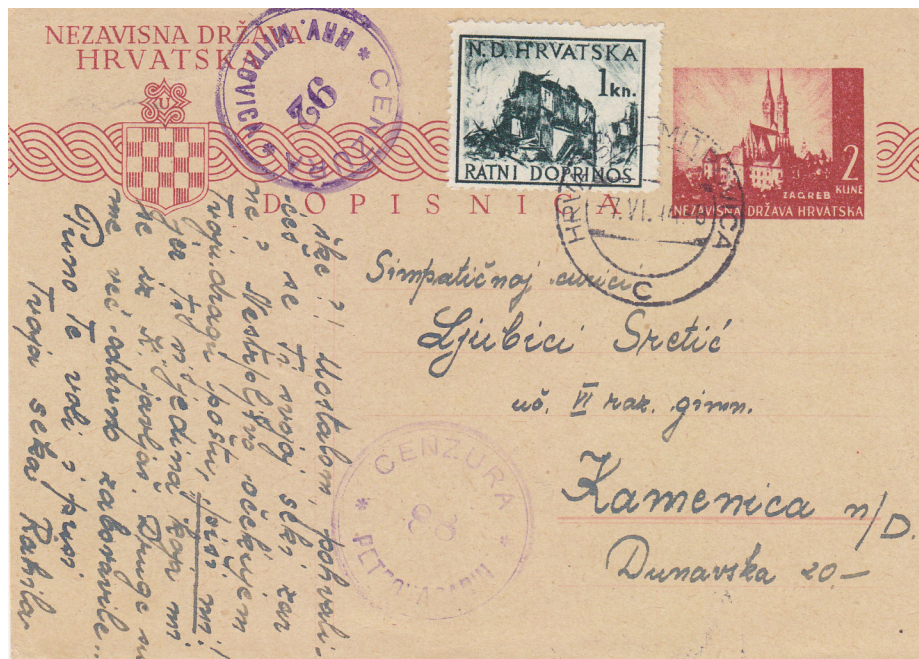 NEZAVISNA DRŽAVA
HRVATSKA
U
CENZURA
HRV. MITROVICA
92
N.D. HRVATSKA
1 kn.
RATNI DOPRINOS
ZAGREB
2
KUNE
NEZAVISNA DRŽAVA HRVATSKA
DOPISNICA
HRV. MITROVICA
7.VI.44.
Simpatičnoj curici
Ljubici Sretić
uč. VI raz. gimn.
Kamenica n/D.
Dunavska 20.—
CENZURA
PETROVARADIN
ške?! Uostalom, pohvali-
ćeš se ti svojoj seki zar
ne? Nestrpljivo očekujem
tvoju dragu poštu, piši mi!
jer ti si jedina koja mi
se iz K. javljaš. Druge su
me već odavno zaboravile...
Puno te voli i pusi
tvoja seka Ratila